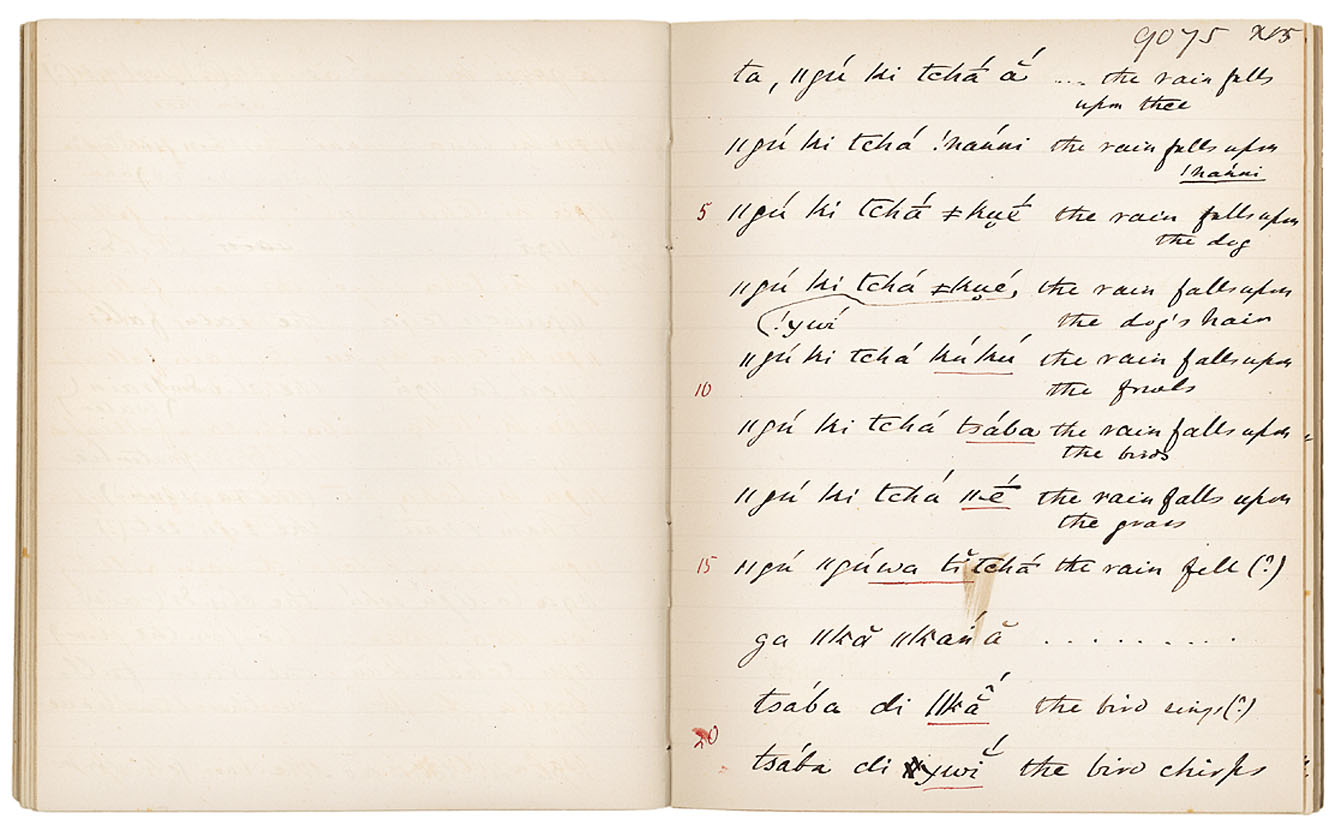 9075 x15
ta, ‖gú ki tchá ắ .... the rain falls
upon thee
‖gú ki tchá !naṅni the rain falls upon
!naṅni
5 ‖gú ki tchá ǂkṷḗ the rain falls upon
the dog
‖gú ki tchá ǂkṷé, the rain falls upon
(!χwí the dog's hair
‖gú ki tchá kúkú the rain falls upon
10 the fowls
‖gú ki tchá tsába the rain falls upon
the birds
‖gú ki tchá ‖é the rain falls upon
the grass
15 ‖gú ‖gúwa tĭ tchá the rain fell (?)
ga ‖kă ‖kaṅ́ă . . . . . . . . .
tsába di ‖kắ the bird sings (?)
20
tsába di χwĭ́ the bird chirps